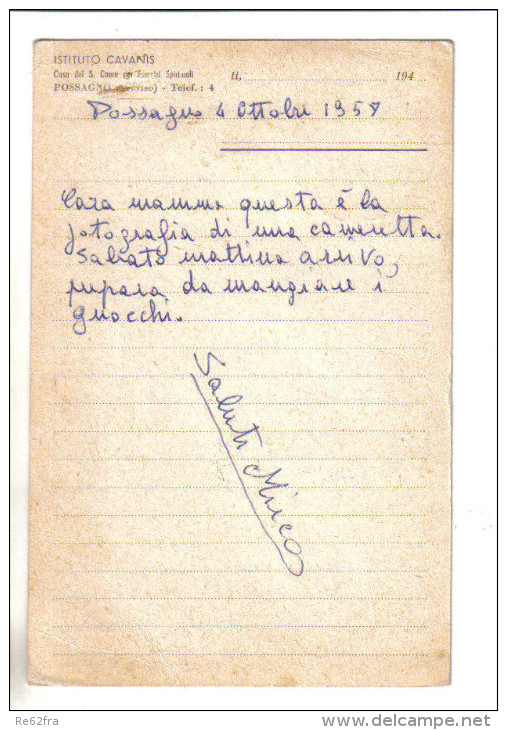 ISTITUTO CAVANIS
Casa del S. Cuore per Esercizi Spirituali
POSSAGNO (Treviso) - Telef.: 4
li, 194
Possagno 4 Ottobre 1958
Cara mamma questa è la
fotografia di una cameretta.
Sabato mattina arrivo,
prepara da mangiare i
gnocchi.
Saluti Mirco
Re62fra
www.delcampe.net